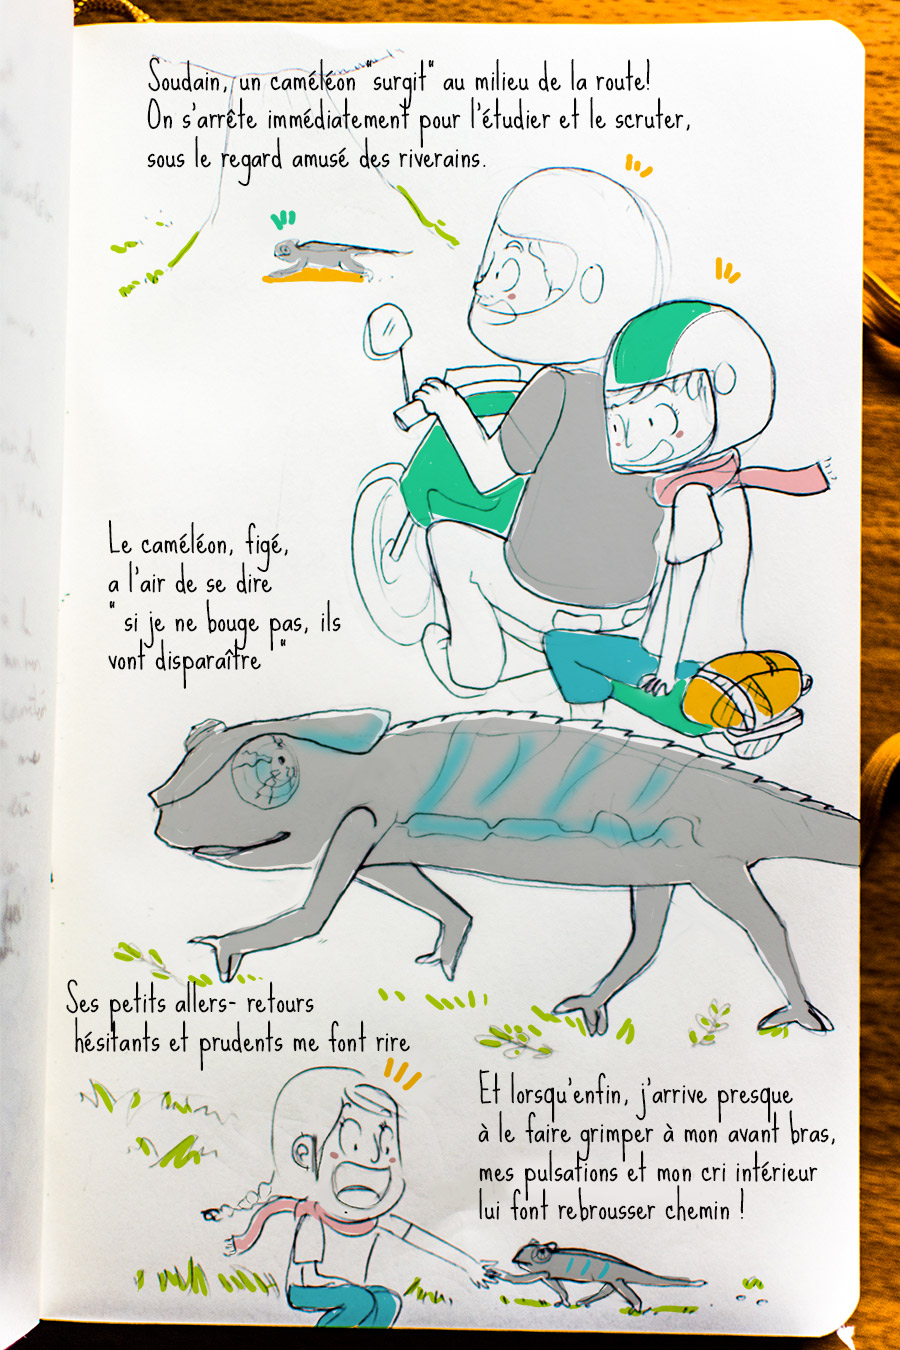 Soudain, un caméléon "surgit" au milieu de la route!
On s'arrête immédiatement pour l'étudier et le scruter,
sous le regard amusé des riverains.
Le caméléon, figé,
a l'air de se dire
" si je ne bouge pas, ils
vont disparaître "
Ses petits allers- retours
hésitants et prudents me font rire
Et lorsqu'enfin, j'arrive presque
à le faire grimper à mon avant bras,
mes pulsations et mon cri intérieur
lui font rebrousser chemin !